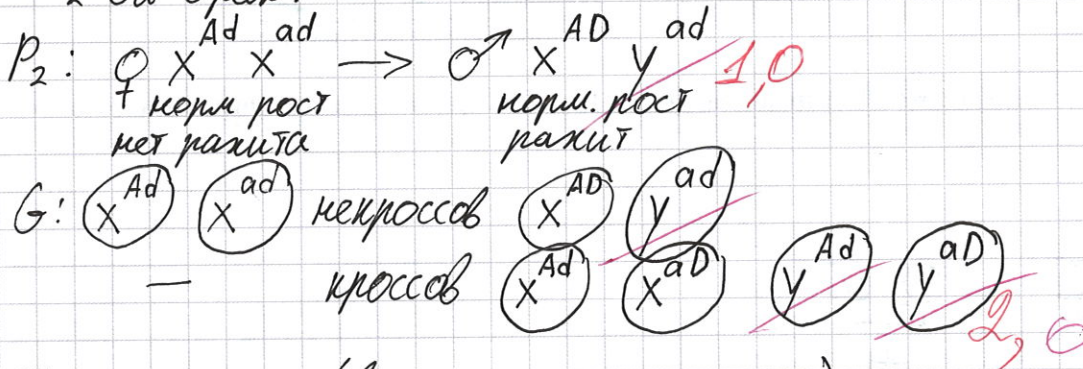 P₂: ♀ X^Ad X^ad —> ♂ X^AD Y^ad 1,0
норм рост норм. рост
нет рахита рахит
G: X^Ad X^ad некроссов X^AD Y^ad
— кроссов X^Ad X^aD Y^Ad Y^aD
2,0